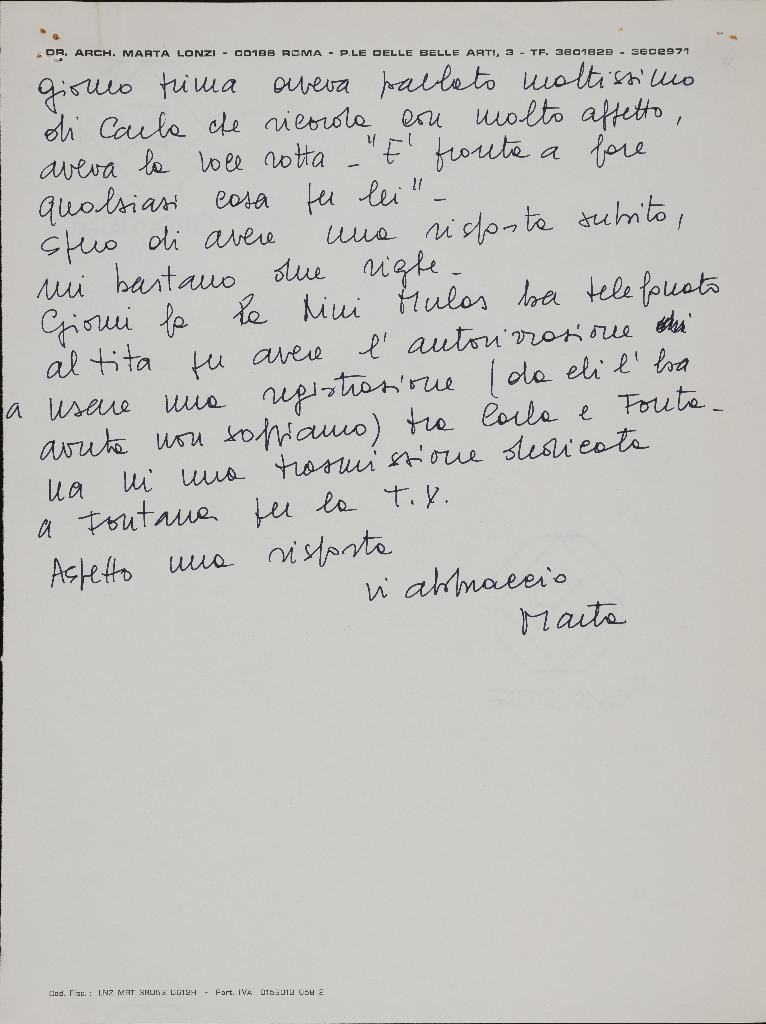 DR. ARCH. MARTA LONZI - 00196 ROMA - P.LE DELLE BELLE ARTI, 3 - TF. 3601829 - 3602971
giorno prima aveva parlato moltissimo
di Carla che ricorda con molto affetto,
aveva la voce rotta - "E' pronta a fare
qualsiasi cosa per lei" -
Spero di avere una risposta subito,
mi bastano due righe -
Giorni fa la Nini Mulas ha telefonato
al Tita per avere l'autorizzazione
a usare una registrazione (da chi l'ha
avuta non sappiamo) tra Carla e Fonta-
na in una trasmissione dedicata
a Fontana per la T.V.
Aspetto una risposta
vi abbraccio
Marta
Cod. Fisc.: LNZ MRT 38D53 D612H - Part. IVA 0155013 058 2